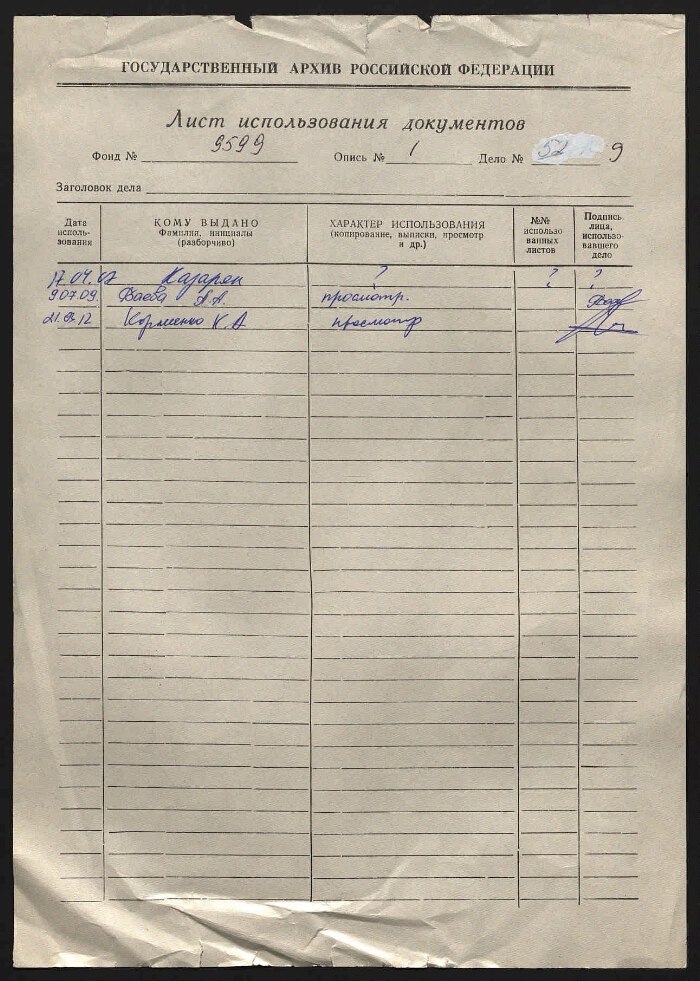 ГОСУДАРСТВЕННЫЙ АРХИВ РОССИЙСКОЙ ФЕДЕРАЦИИ
Лист использования документов
Фонд № 9599 Опись № 1 Дело № 9
Заголовок дела
Дата исполь-зования КОМУ ВЫДАНО Фамилия, инициалы (разборчиво) ХАРАКТЕР ИСПОЛЬЗОВАНИЯ (копирование, выписки, просмотр и др.) №№ использо ванных листов Подпись лица, использо-вавшего дело
17.04.02 Казарян ? ? ?
9.07.09. А.А. просмотр.
12 К.А просмотр